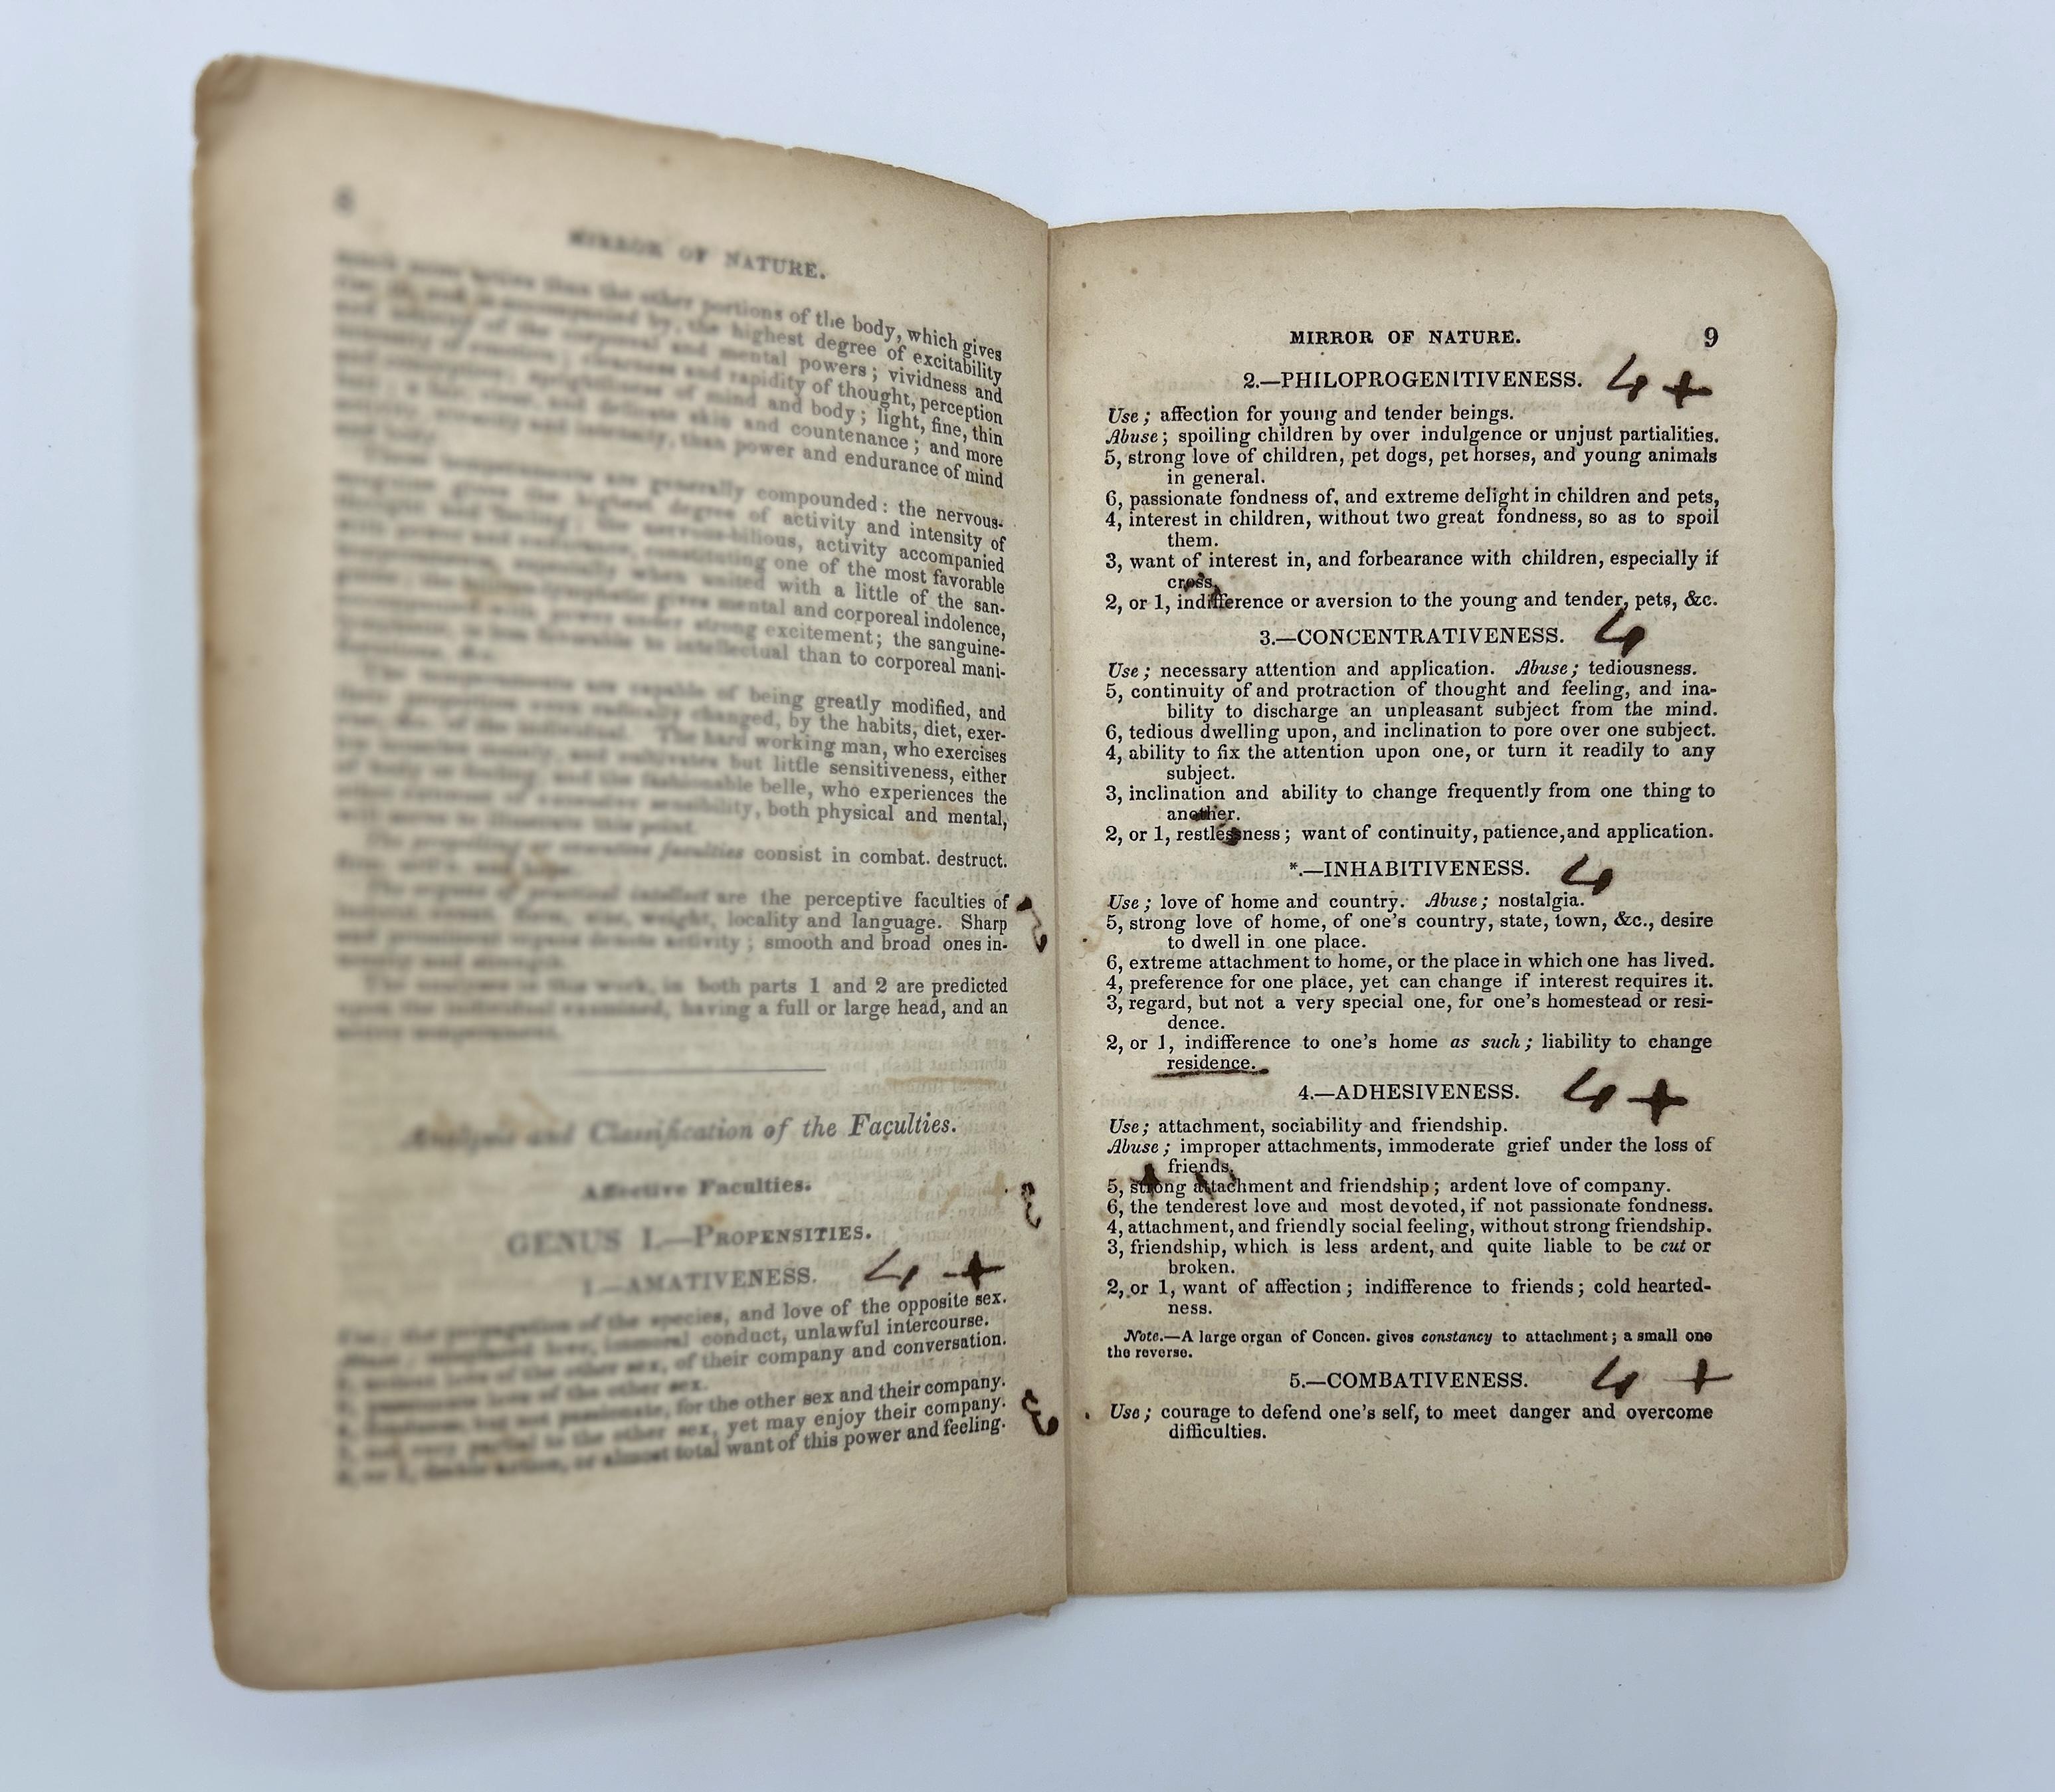 MIRROR OF NATURE.
than the other portions of the body, which gives
accompanied by, the highest degree of excitability
of the corporeal and mental powers; vividness and
clearness and rapidity of thought, perception
of mind and body; light, fine, thin
and delicate skin and countenance; and more
and intensity, than power and endurance of mind
temperaments are generally compounded: the nervous-
gives the highest degree of activity and intensity of
the nervous-bilious, activity accompanied
constituting one of the most favorable
especially when united with a little of the san-
gives mental and corporeal indolence,
power under strong excitement; the sanguine-
is less favorable to intellectual than to corporeal mani-
The temperaments are capable of being greatly modified, and
their proportions even radically changed, by the habits, diet, exer-
of the individual. The hard working man, who exercises
and cultivates but little sensitiveness, either
and the fashionable belle, who experiences the
sensibility, both physical and mental,
to illustrate this point.
The propelling or executive faculties consist in combat. destruct.
The organs of practical intellect are the perceptive faculties of
form, size, weight, locality and language. Sharp
and prominent organs denote activity; smooth and broad ones in-
and strength.
The analyses in this work, in both parts 1 and 2 are predicted
upon the individual examined, having a full or large head, and an
active temperament.
Analysis and Classification of the Faculties.
Affective Faculties.
GENUS I.—PROPENSITIES.
1.—AMATIVENESS. 4 +
the propagation of the species, and love of the opposite sex.
love, immoral conduct, unlawful intercourse.
love of the other sex, of their company and conversation.
passionate love of the other sex.
but not passionate, for the other sex and their company.
not very partial to the other sex, yet may enjoy their company.
or almost total want of this power and feeling.
MIRROR OF NATURE. 9
2.—PHILOPROGENITIVENESS. 4 +
Use; affection for young and tender beings.
Abuse; spoiling children by over indulgence or unjust partialities.
5, strong love of children, pet dogs, pet horses, and young animals
in general.
6, passionate fondness of, and extreme delight in children and pets,
4, interest in children, without two great fondness, so as to spoil
them.
3, want of interest in, and forbearance with children, especially if
cross,
2, or 1, indifference or aversion to the young and tender, pets, &c.
3.—CONCENTRATIVENESS. 4
Use; necessary attention and application. Abuse; tediousness.
5, continuity of and protraction of thought and feeling, and ina-
bility to discharge an unpleasant subject from the mind.
6, tedious dwelling upon, and inclination to pore over one subject.
4, ability to fix the attention upon one, or turn it readily to any
subject.
3, inclination and ability to change frequently from one thing to
another.
2, or 1, restlessness; want of continuity, patience, and application.
*.—INHABITIVENESS. 4
Use; love of home and country. Abuse; nostalgia.
5, strong love of home, of one's country, state, town, &c., desire
to dwell in one place.
6, extreme attachment to home, or the place in which one has lived.
4, preference for one place, yet can change if interest requires it.
3, regard, but not a very special one, for one's homestead or resi-
dence.
2, or 1, indifference to one's home as such; liability to change
residence.
4.—ADHESIVENESS. 4 +
Use; attachment, sociability and friendship.
Abuse; improper attachments, immoderate grief under the loss of
friends.
5, strong attachment and friendship; ardent love of company.
6, the tenderest love and most devoted, if not passionate fondness.
4, attachment, and friendly social feeling, without strong friendship.
3, friendship, which is less ardent, and quite liable to be cut or
broken.
2, or 1, want of affection; indifference to friends; cold hearted-
ness.
Note.—A large organ of Concen. gives constancy to attachment; a small one
the reverse.
5.—COMBATIVENESS. 4 +
Use; courage to defend one's self, to meet danger and overcome
difficulties.